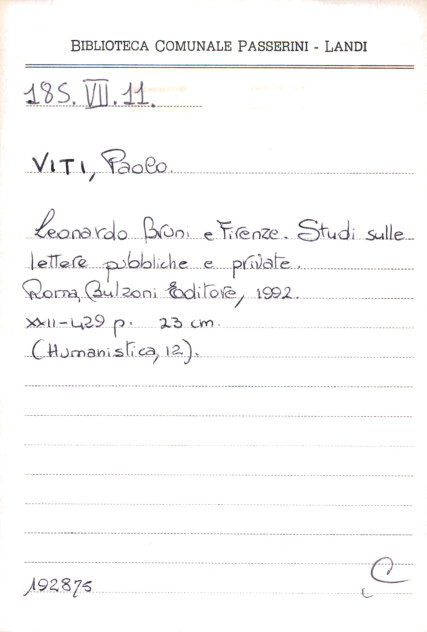 BIBLIOTECA COMUNALE PASSERINI - LANDI
18S. VII. 11.
VITI, Paolo.
Leonardo Bruni e Firenze. Studi sulle
lettere pubbliche e private.
Roma, Bulzoni Editore, 1992.
XXII-429 p. 23 cm.
(Humanistica, 12).
C
192875